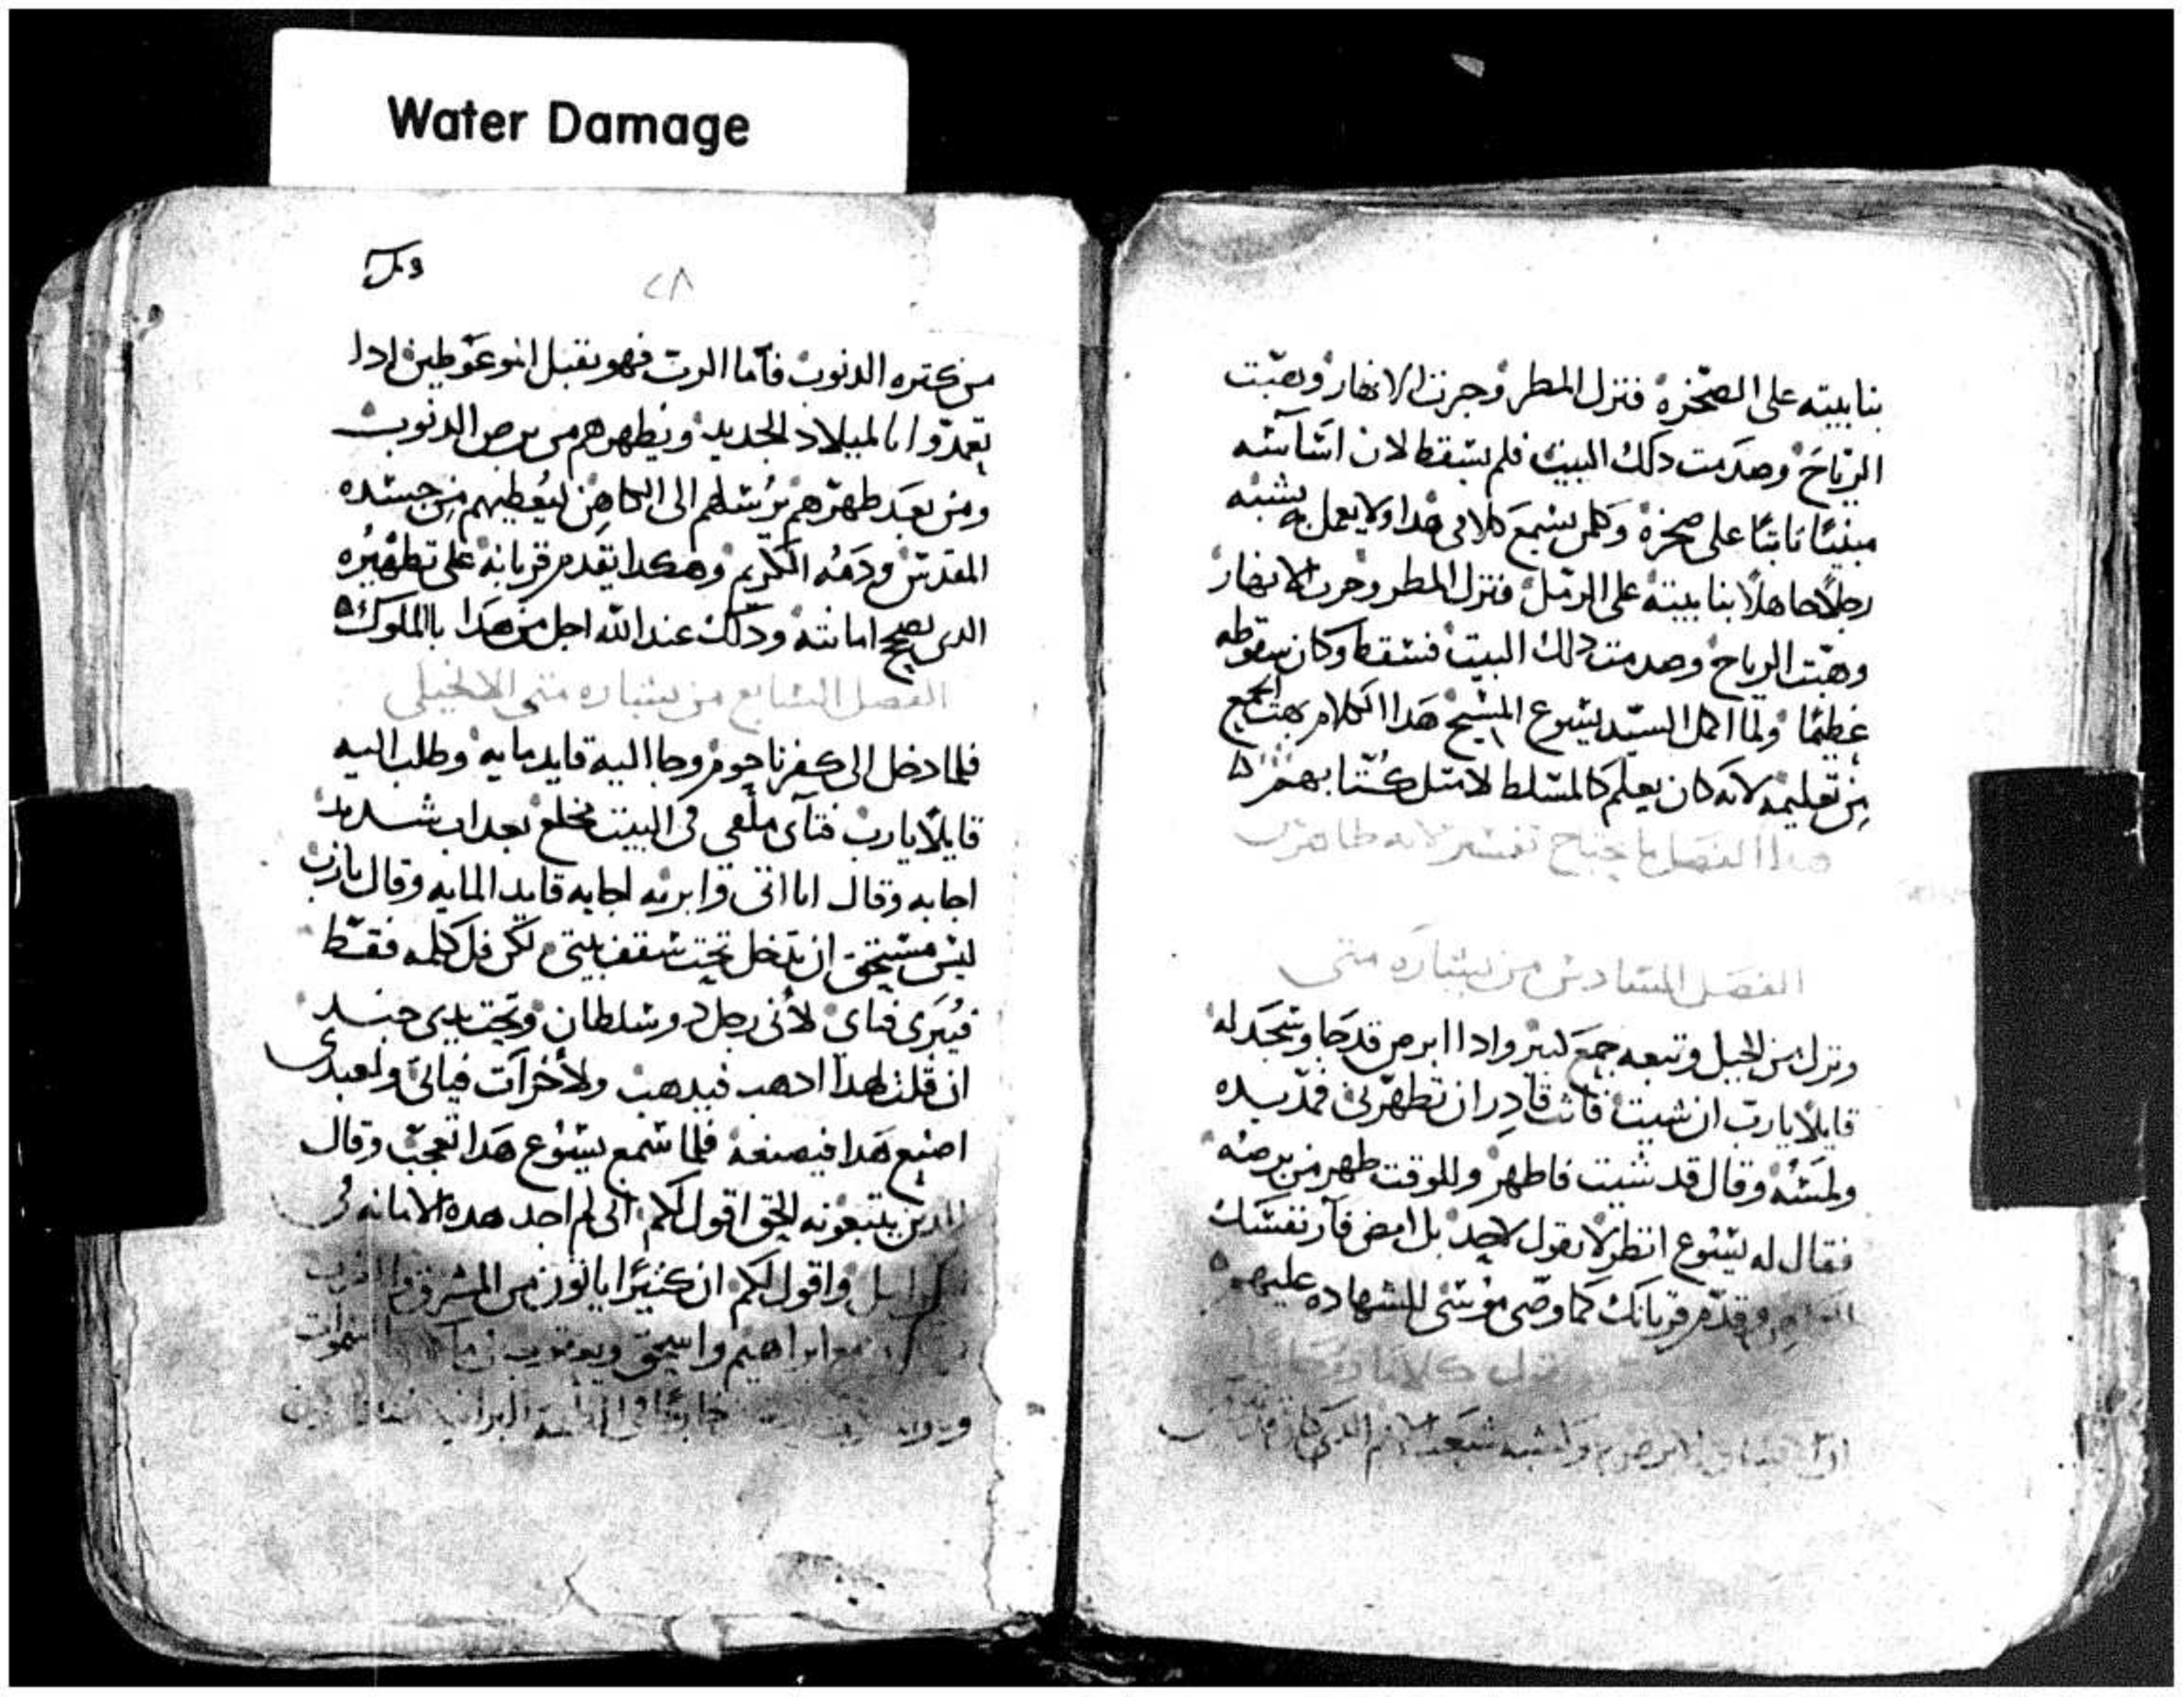 Water Damage
بنا بيته على الصخرة فنزل المطر وجرت الانهار وهبت
الرياح وصدمت دلك البيت فلم يسقط لان اساسه
مبنيًا ثابتًا على صخرة وكلمن يسمع كلامى هدا ولا يعمل به يشبه
رجلًا جاهلًا بنا بيته على الرمل فنزل المطر وجرت الانهار
وهبت الرياح وصدمت دلك البيت فسقط وكان سقوطه
عظيمًا ولما اكمل السيد يسوع المسيح هدا الكلام بهت الجمع
من تعليمه لانه كان يعلم كالمسلط لا متل كتابهم
هدا الفصل ما يحتاج تفسير لانه ظاهر
الفصل السادس من بشاره متى
ونزل من الجبل وتبعه جمع كبير وادا ابرص قد جا وسجد له
قايلًا يارب ان شيت فانت قادر ان تطهرنى فمد يده
ولمسه وقال قد شيت فاطهر وللوقت طهر من برصه
فقال له يسوع انظر لا تقول لاحد بل امض فار نفسك
وقدم قربانك كما وصى موسى للشهاده عليهم
كلامًا روحانيًا
٢٨
من كتره الدنوب فاما الرب فهو يقبل
تعمدوا بالميلاد الجديد ويطهرهم من برص الدنوب
ومن بعد طهرهم يرسلهم الى الكاهن ليعطيهم من جسده
المقدس ودمه الكريم وهكدا يقدم قربانه على تطهيره
الدى تصح امانته ودلك عند الله اجل من هدا بالملوك
الفصل السابع من بشاره متى الانجيلى
فلما دخل الى كفرناحوم وجا اليه قايد مايه وطلب اليه
قايلًا يارب فتاى ملقى فى البيت مخلع بعداب شديد
اجابه وقال انا اتى وابريه اجابه قايد المايه وقال يارب
ليس مستحق ان تدخل تحت سقف بيتى لكن قل كلمه فقط
فيبرى فتاى لانى رجل دو سلطان وتحت يدى جند
ان قلت لهدا ادهب فيدهب ولاخر ات فياتى ولعبدى
اصنع هدا فيصنعه فلما سمع يسوع هدا تعجب وقال
للدين يتبعونه الحق اقول لكم انى لم اجد هده الامانه فى
واقول لكم ان كتيرًا ياتون من المشرق والمغرب
مع ابراهيم واسحق ويعقوب السموات